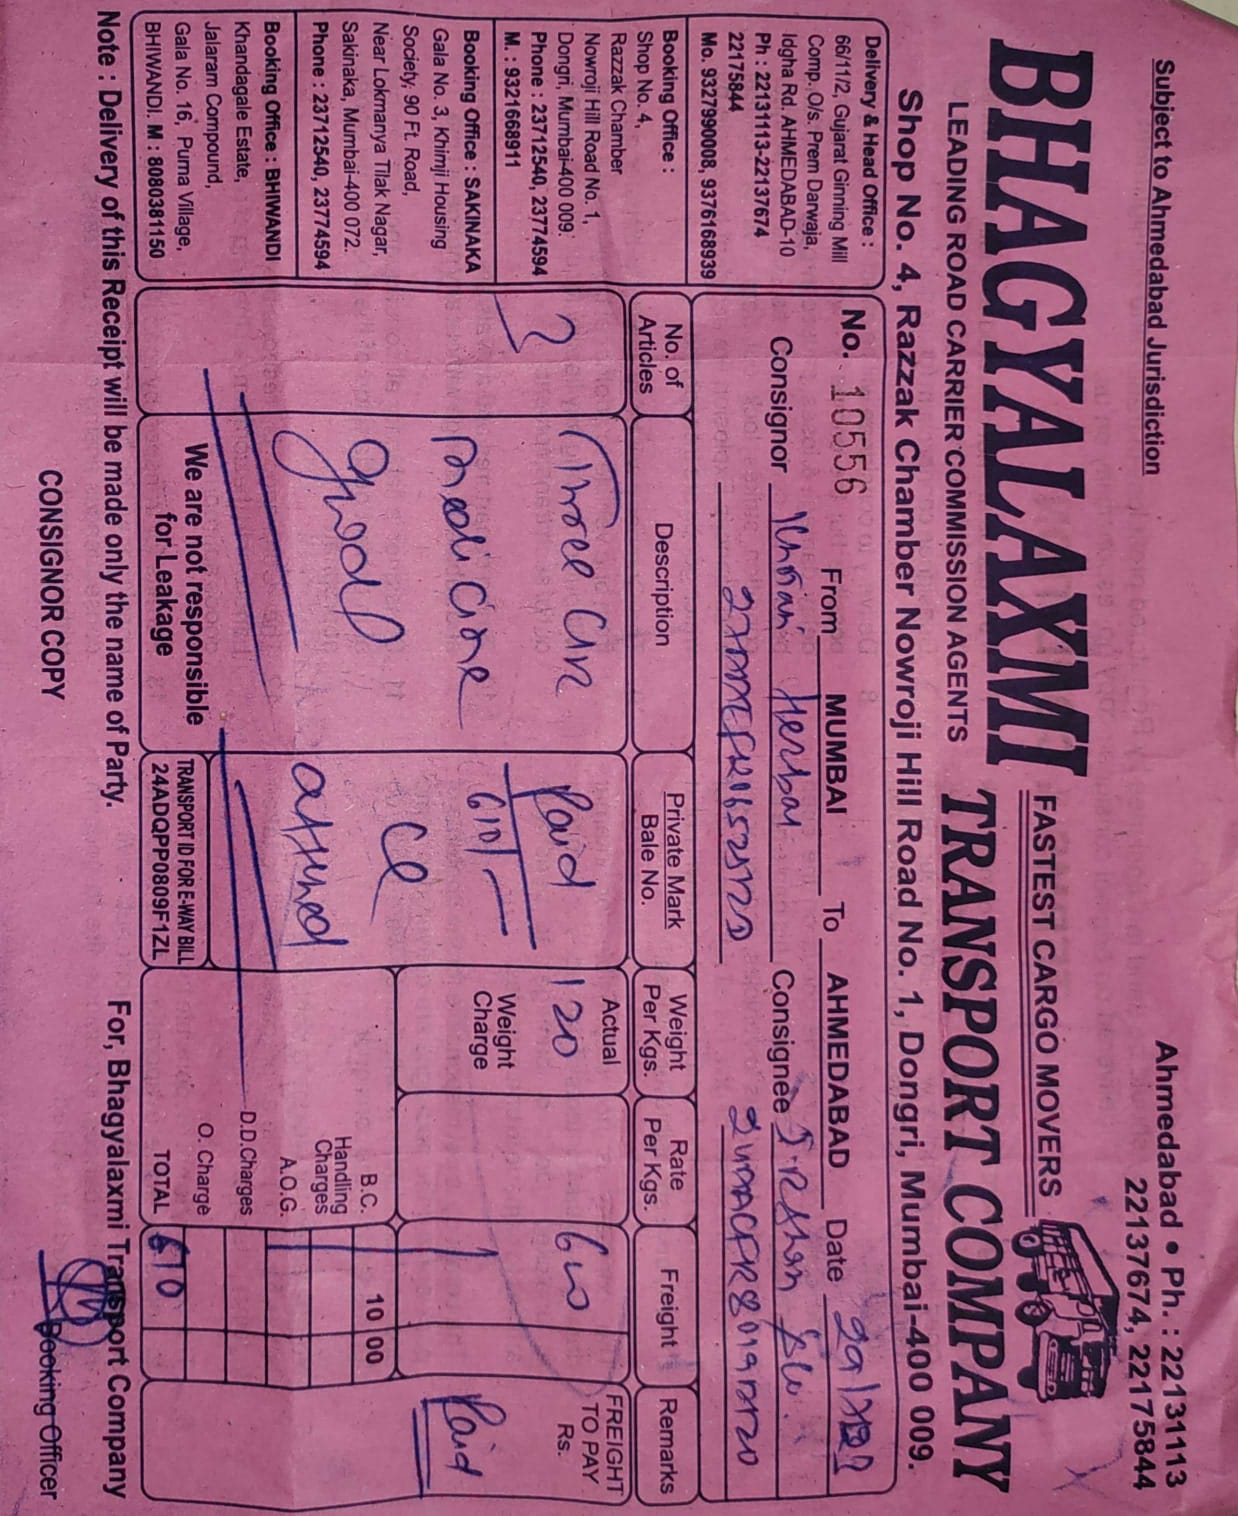 Subject to Ahmedabad Jurisdiction
Ahmedabad • Ph. : 22131113
22137674, 22175844
BHAGYALAXMI
FASTEST CARGO MOVERS
TRANSPORT COMPANY
LEADING ROAD CARRIER COMMISSION AGENTS
Shop No. 4, Razzak Chamber Nowroji Hill Road No. 1, Dongri, Mumbai-400 009.
Delivery & Head Office :
66/11/2, Gujarat Ginning Mill
Comp. O/s. Prem Darwaja,
Idgha Rd. AHMEDABAD-10
Ph : 22131113-22137674
22175844
Mo. 9327990008, 9376168939
Booking Office :
Shop No. 4,
Razzak Chamber
Nowroji Hill Road No. 1,
Dongri, Mumbai-400 009.
Phone : 23712540, 23774594
M. : 9321668911
Booking Office : SAKINAKA
Gala No. 3, Khimji Housing
Society, 90 Ft. Road,
Near Lokmanya Tilak Nagar,
Sakinaka, Mumbai-400 072.
Phone : 23712540, 23774594
Booking Office : BHIWANDI
Khandagale Estate,
Jalaram Compound,
Gala No. 16, Purna Village,
BHIWANDI. M : 8080381150
No. 10556 From MUMBAI To AHMEDABAD Date
Consignor Herbal Consignee
No. of Articles
Description
Private Mark
Bale No.
Weight Per Kgs.
Rate Per Kgs.
Freight
Remarks
3
Three Cn
medicine
good
Paid
610/-
Actual
120
Weight Charge
600
FREIGHT TO PAY Rs.
Paid
B.C. 10 00
Handling Charges
A.O.G.
D.D.Charges
O. Charge
TOTAL 610
We are not responsible for Leakage
TRANSPORT ID FOR E-WAY BILL
24ADQPP0809F1ZL
Note : Delivery of this Receipt will be made only the name of Party.
For, Bhagyalaxmi Transport Company
CONSIGNOR COPY
Booking Officer